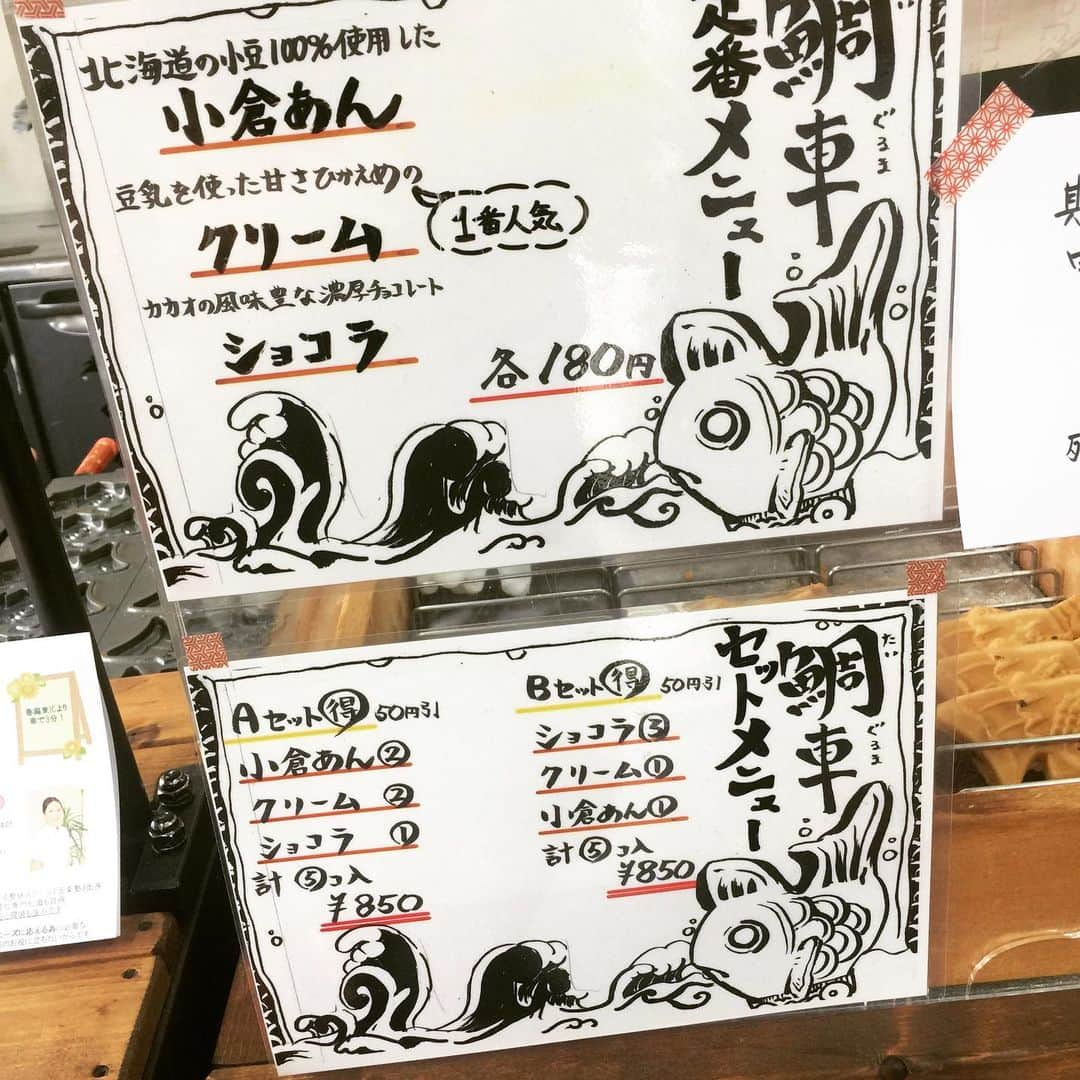 鯛車
たい
ぐるま
定番メニュー
北海道の小豆100%使用した
小倉あん
豆乳を使った甘さひかえめの
クリーム
1番人気
カカオの風味豊な濃厚チョコレート
ショコラ
各180円
鯛車
たい
ぐるま
セットメニュー
Aセット得 50円引
小倉あん②
クリーム②
ショコラ①
計⑤コ入
¥850
Bセット得 50円引
ショコラ③
クリーム①
小倉あん①
計⑤コ入
¥850
車で3分!